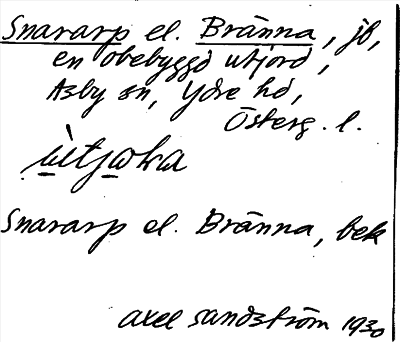 Snararp el. Bränna, jb,
en obebyggd utjord,
Asby sn, Ydre hd,
Österg. l.
Snararp el. Bränna, bek
Axel Sandström 1930